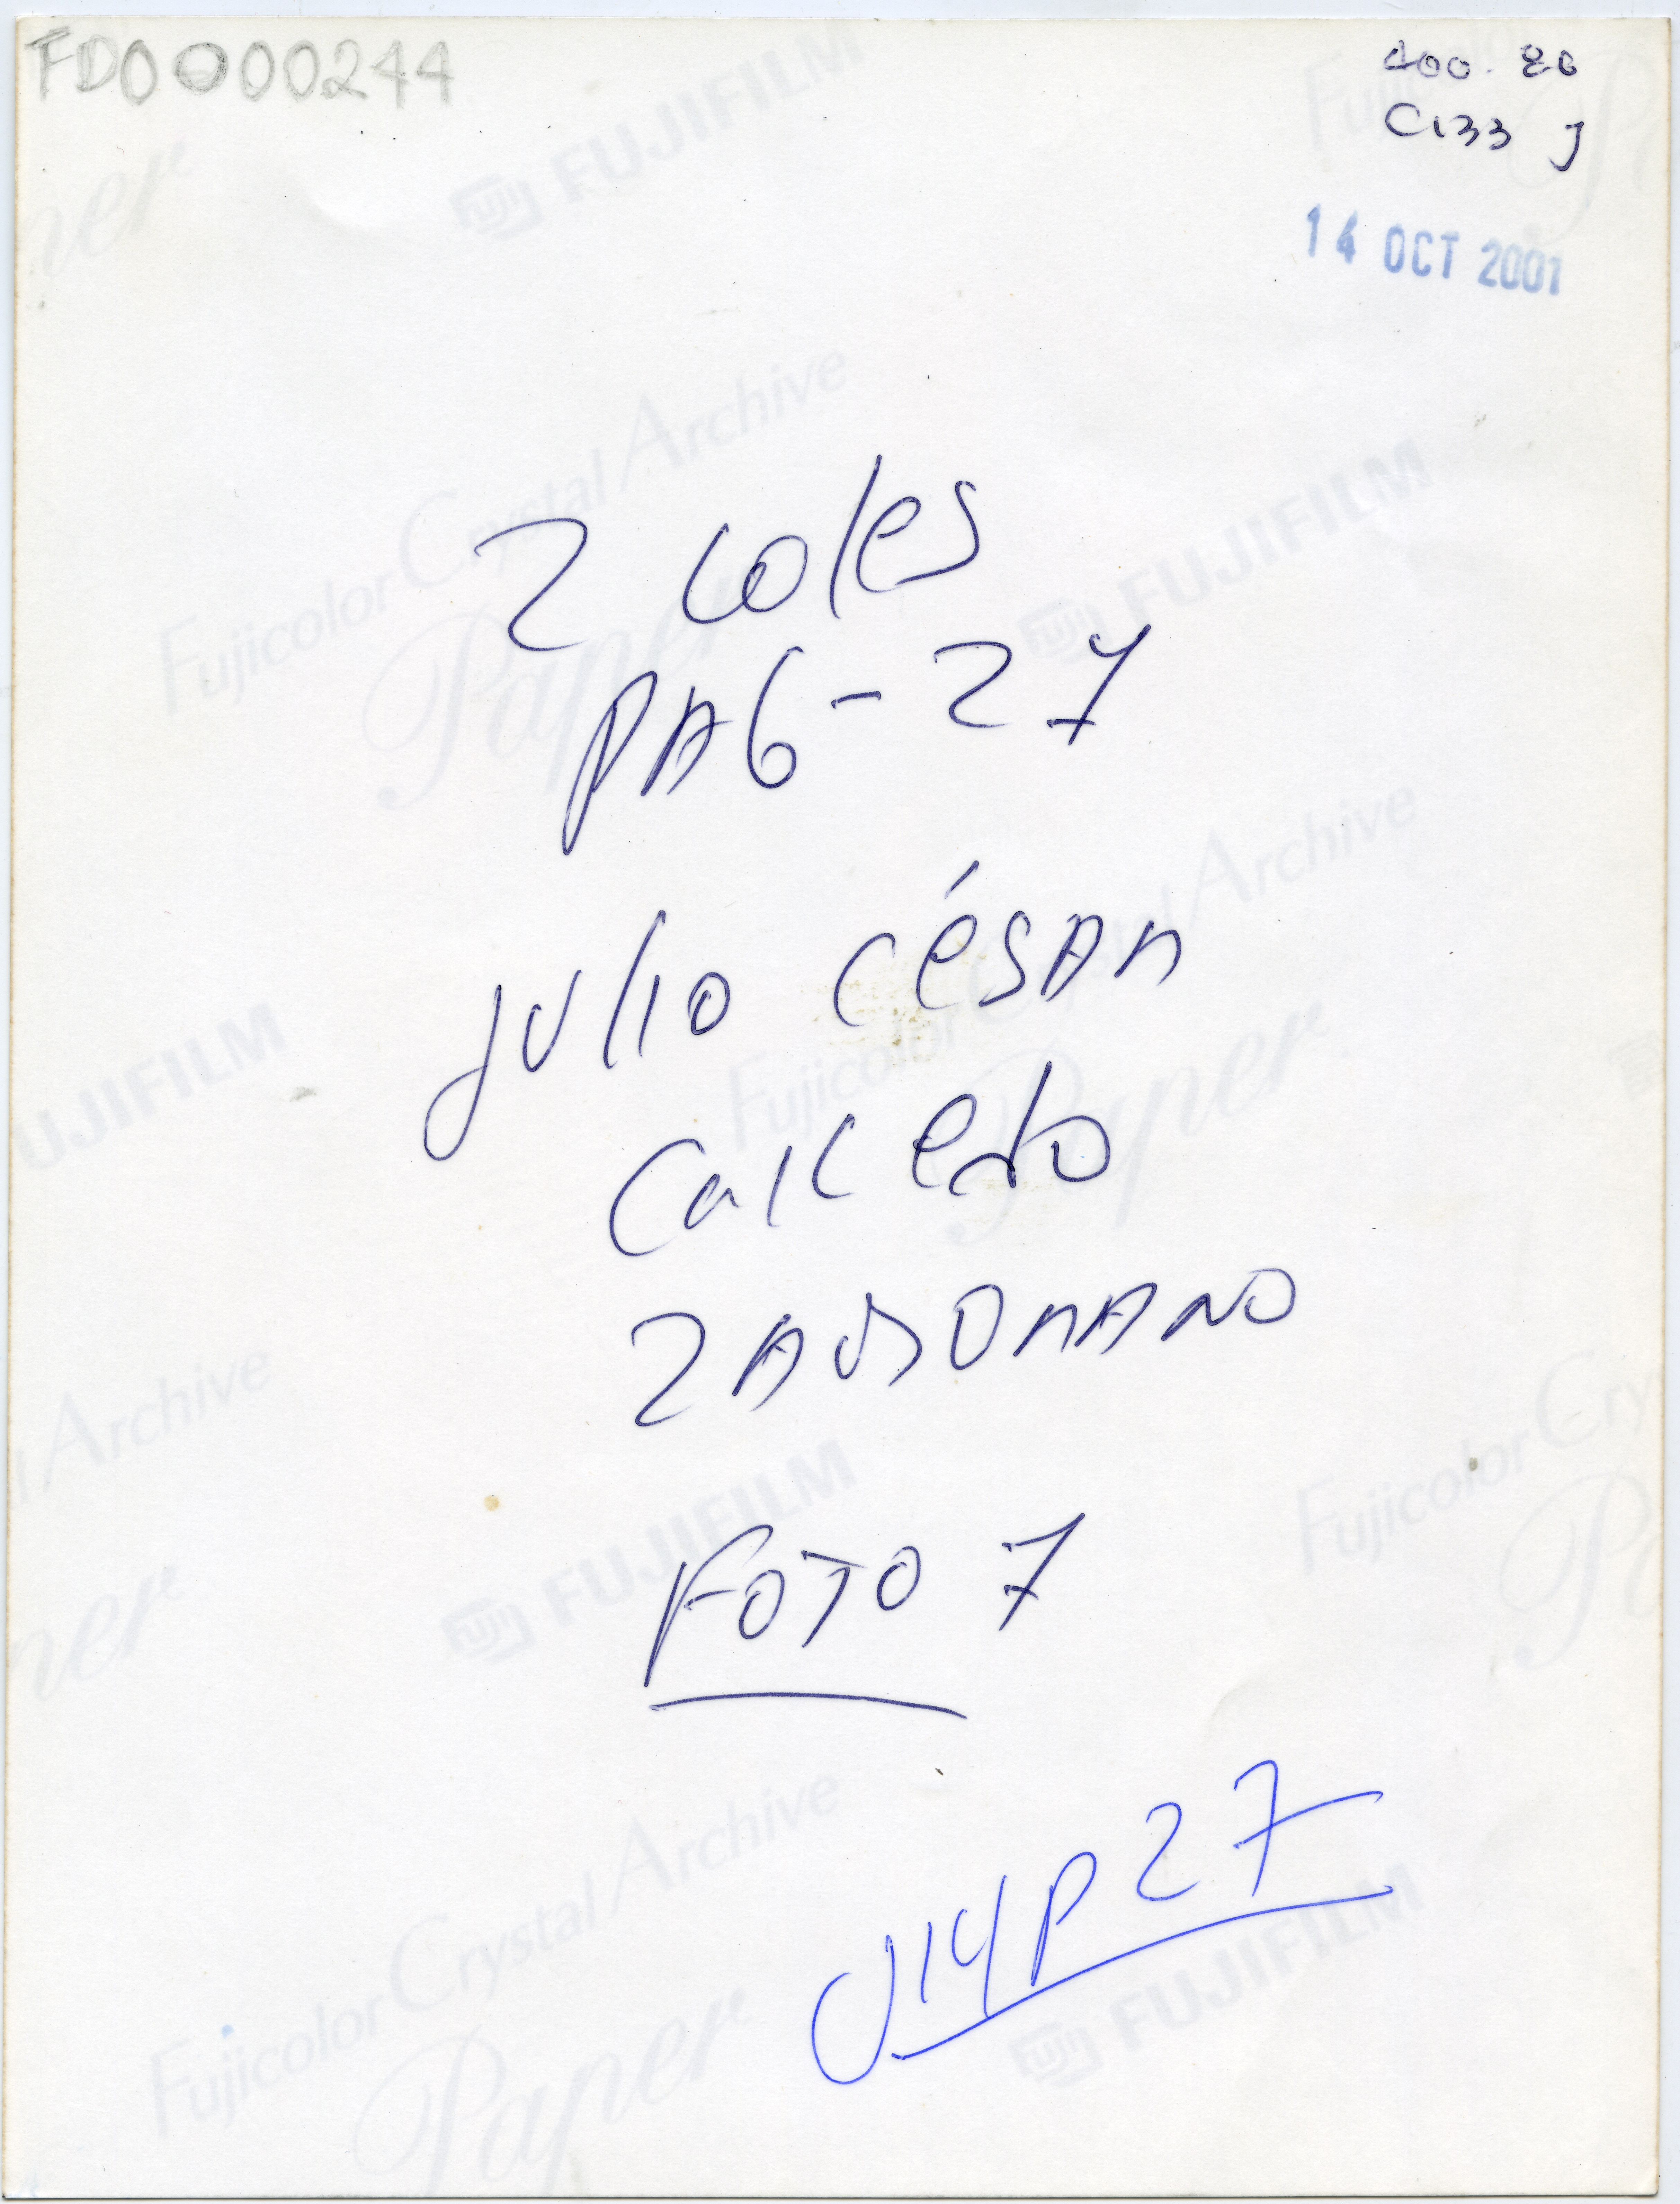 FD0000244
400.20
C133 J
14 OCT 2001
2 coles
PAG-27
Julio César
Caicedo
FOTO 7
J14P27
FUJIFILM
Fujicolor Crystal Archive
Paper